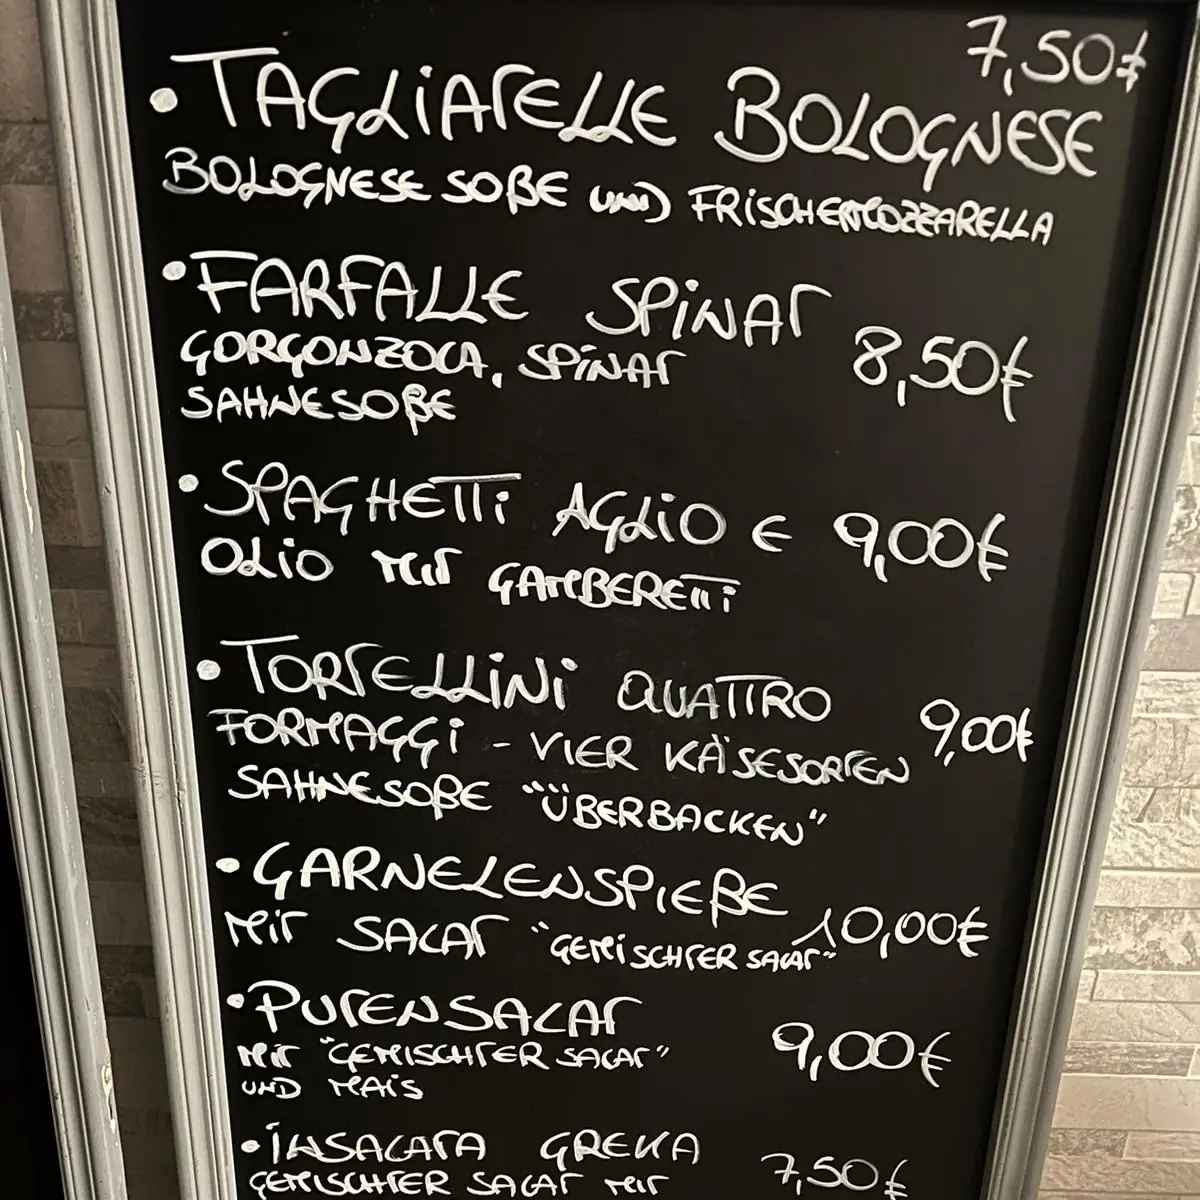 7,50€
• TAGLIATELLE BOLOGNESE
BOLOGNESE SOßE UND FRISCHEMOZZARELLA
• FARFALLE SPINAT
GORGONZOLA, SPINAT 8,50€
SAHNESOßE
• SPAGHETTI AGLIO E 9,00€
OLIO MIT GAMBERETTI
• TORTELLINI QUATTRO 9,00€
FORMAGGI - VIER KÄSESORTEN
SAHNESOßE "ÜBERBACKEN"
• GARNELENSPIEßE 10,00€
MIT SALAT "GEMISCHTER SALAT"
• PUTENSALAT 9,00€
MIT "GEMISCHTER SALAT"
UND MAIS
• INSALATA GREKA 7,50€
GEMISCHTER SALAT MIT